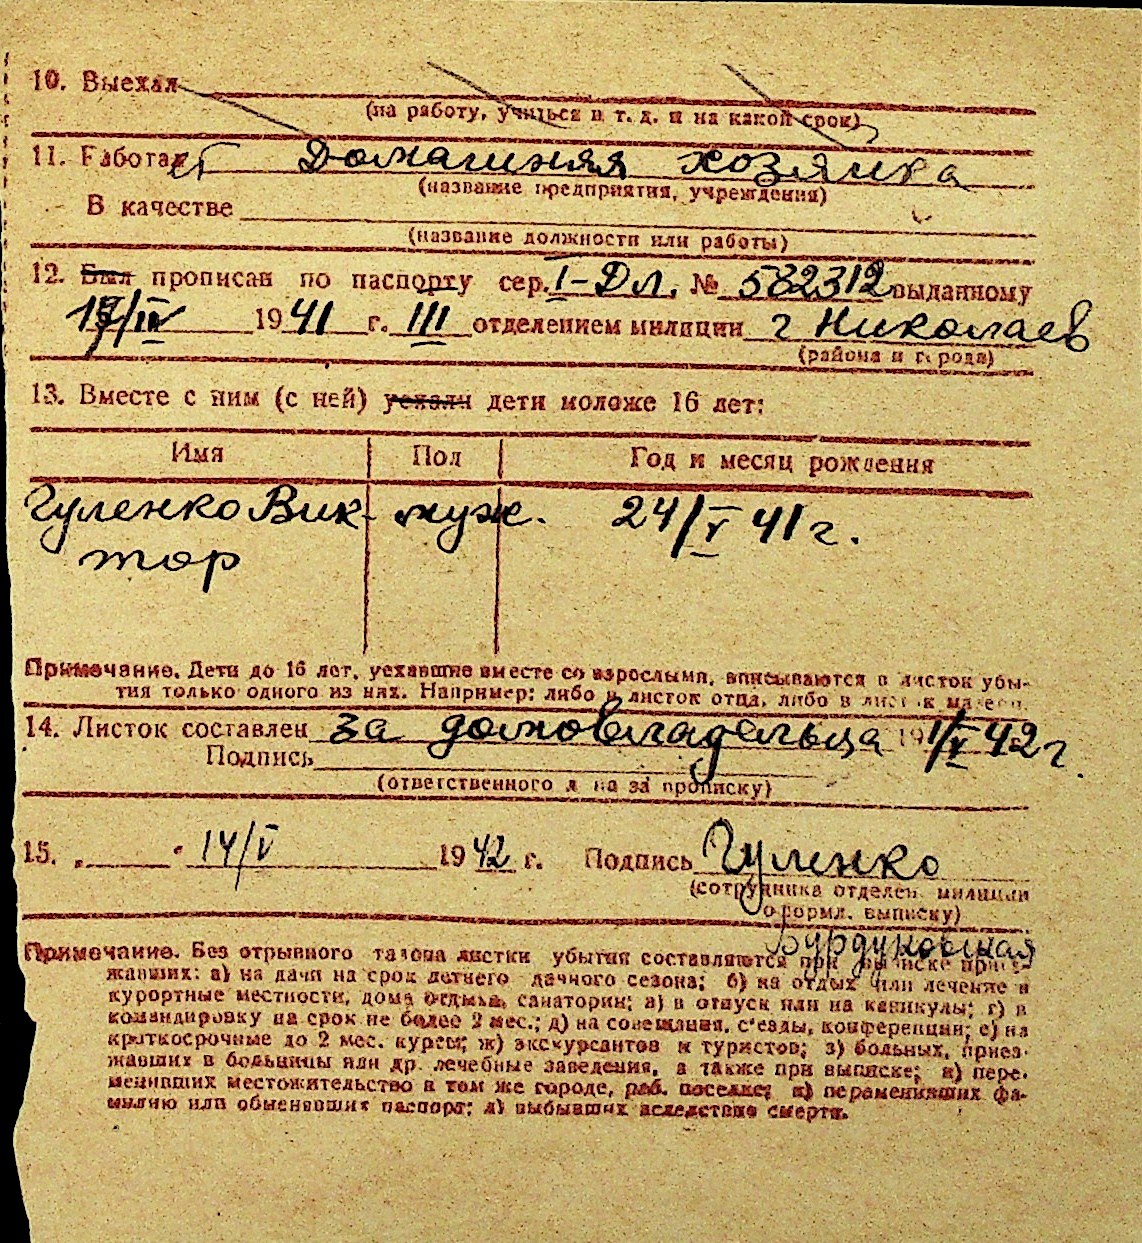 10. Выехал
(на работу, учиться и т. д. и на какой срок)
11. Работает Домашняя хозяйка
(название предприятия, учреждения)
В качестве
(название должности или работы)
12. Был прописан по паспорту сер. I-Дл. № 582312 выданному
1941 г. III отделением милиции г Николаев
(района и города)
13. Вместе с ним (с ней) уехали дети моложе 16 лет:
Имя Пол Год и месяц рождения
Гуленко Вик- муж. 24/V 41 г.
тор
Примечание. Дети до 16 лет, уехавшие вместе со взрослыми, вписываются в листок убы-
тия только одного из них. Например: либо в листок отца, либо в листок матери.
14. Листок составлен за домовладельца 19 1/V 42 г.
Подпись
(ответственного л на за прописку)
15. „ “ 14/V 1942 г. Подпись Гуленко
(сотрудника отделен. милиции
оформл. выписку)
Бурдуковская
Примечание. Без отрывного талона листки убытия составляются при выписке приез-
жавших: а) на дачи на срок летнего дачного сезона; б) на отдых или лечение в
курортные местности, дома отдыха, санатории; в) в отпуск или на каникулы; г) в
командировку на срок не более 2 мес.; д) на совещания, с'езды, конференции; е) на
краткосрочные до 2 мес. курсы; ж) экскурсантов и туристов; з) больных, приез-
жавших в больницы или др. лечебные заведения, а также при выписке; и) пере-
менивших местожительство в том же городе, раб. поселке; к) переменивших фа-
милию или обменявших паспорт; л) выбывших вследствие смерти.